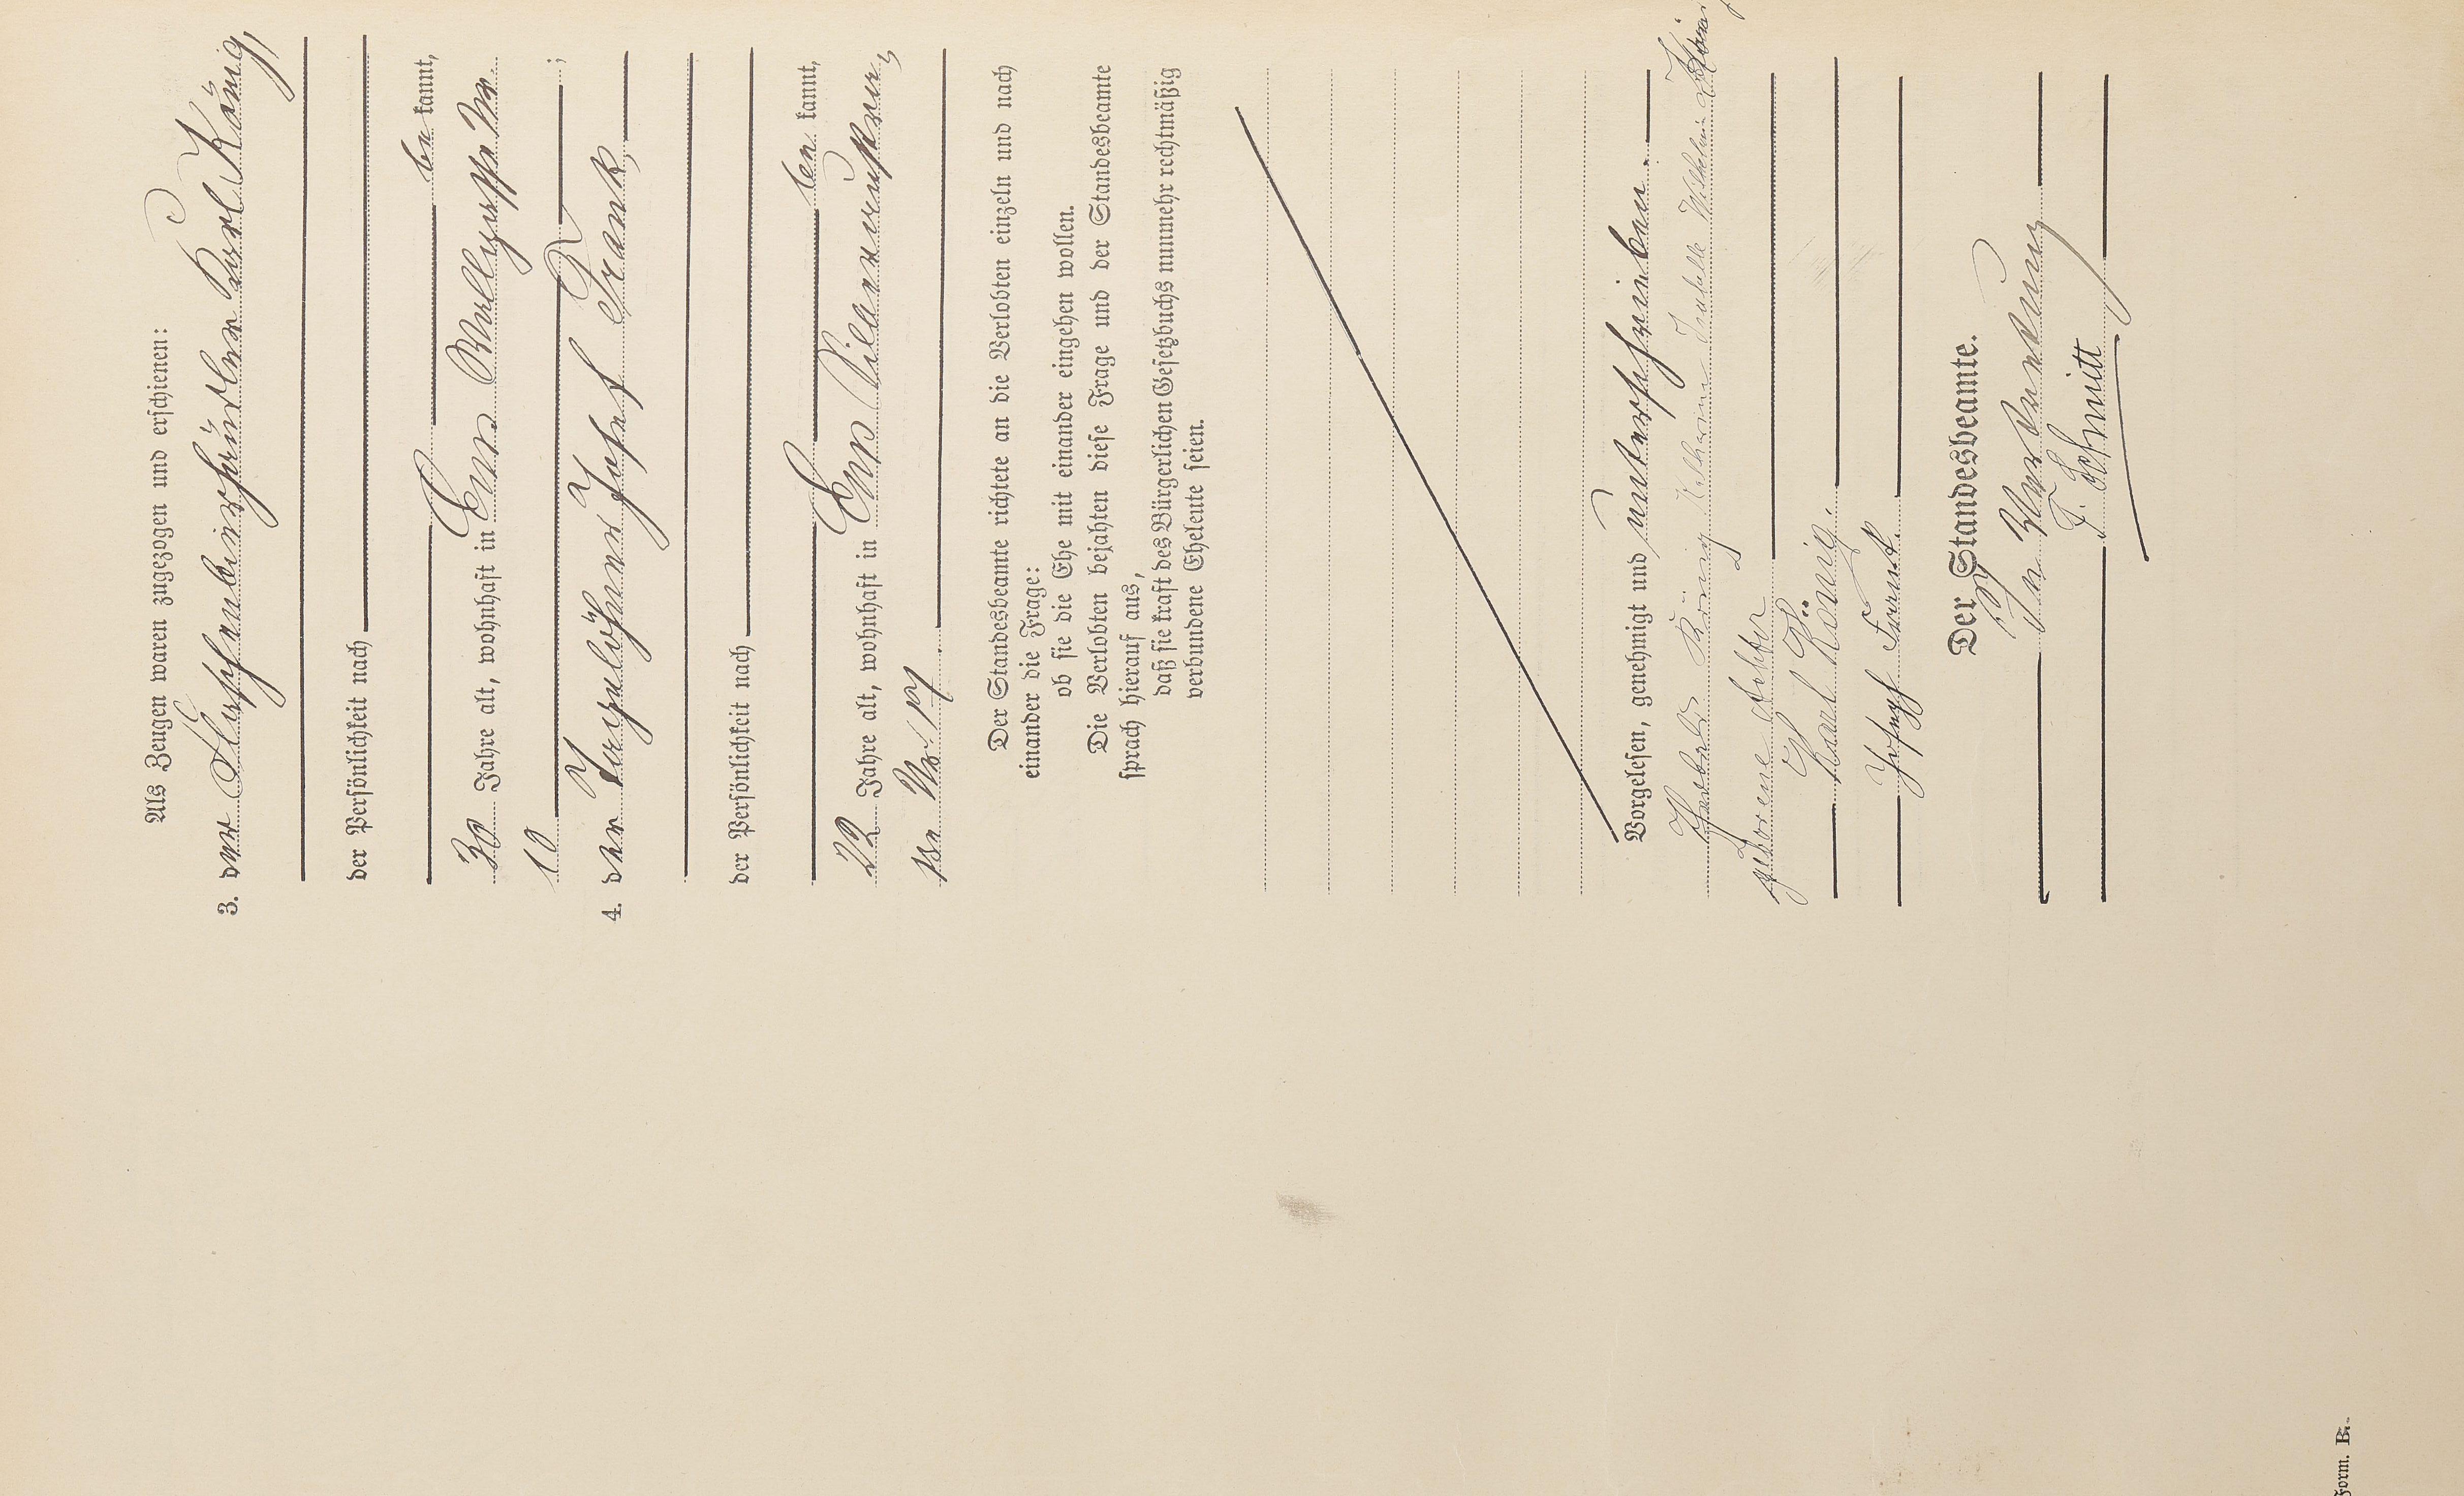 Als Zeugen waren zugezogen und erschienen:
3. der Flaschenbierhändler Karl König,
der Persönlichkeit nach
be kannt,
30 Jahre alt, wohnhaft in Ems Wallgasse No.
10 ;
4. der Tagelöhner Josef Frank,
der Persönlichkeit nach
be kannt,
22 Jahre alt, wohnhaft in Ems Villenpromenade
No. 17.
Der Standesbeamte richtete an die Verlobten einzeln und nach
einander die Frage:
ob sie die Ehe mit einander eingehen wollen.
Die Verlobten bejahten diese Frage und der Standesbeamte
sprach hierauf aus,
daß sie kraft des Bürgerlichen Gesetzbuchs nunmehr rechtmäßig
verbundene Eheleute seien.
Vorgelesen, genehmigt und unterschrieben.
König Katharina Isabella Wilhelmine König
geborene
Karl König.
Josef Frank.
Der Standesbeamte.
In Vertretung
F. Schmitt
Form. B.